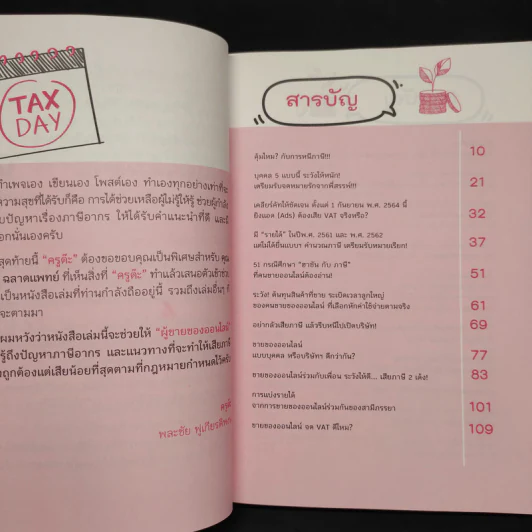 TAX
DAY
ทำเพจเอง เขียนเอง โพสต์เอง ทำเองทุกอย่างเท่าที่จะ
ความสุขที่ได้รับก็คือ การได้ช่วยเหลือผู้ไม่รู้ให้รู้ ช่วยผู้กำลัง
บปัญหาเรื่องภาษีอากร ให้ได้รับคำแนะนำที่ดี และมี
อกนั่นเองครับ
สุดท้ายนี้ "ครูต๊ะ" ต้องขอขอบคุณเป็นพิเศษสำหรับ คุณ
ฉลาดแพทย์ ที่เห็นสิ่งที่ "ครูต๊ะ" ทำแล้วเสนอตัวเข้าช่วย
เป็นหนังสือเล่มที่ท่านกำลังถืออยู่นี้ รวมถึงเล่มอื่นๆ ที่
จะตามมา
ผมหวังว่าหนังสือเล่มนี้จะช่วยให้ "ผู้ขายของออนไลน์"
รู้ถึงปัญหาภาษีอากร และแนวทางที่จะทำให้เสียภาษี
ถูกต้องแต่เสียน้อยที่สุดตามที่กฎหมายกำหนดไว้ครับ
ครูต๊ะ
พละชัย
สารบัญ
คุ้มไหม? กับการหนีภาษี!!! 10
บุคคล 5 แบบนี้ ระวังให้หนัก!
เตรียมรับจดหมายรักจากพี่สรรพ์!!! 21
เคลียร์คัทให้ชัดเจน ตั้งแต่ 1 กันยายน พ.ศ. 2564 นี้
ยิงแอด (Ads) ต้องเสีย VAT จริงหรือ? 32
มี "รายได้" ในปีพ.ศ. 2561 และ พ.ศ. 2562
แต่ไม่ได้ยื่นแบบฯ คำนวณภาษี เตรียมรับหมายเรียก! 37
51 กรณีศึกษา "ฮาซัน กับ ภาษี"
ที่คนขายออนไลน์ต้องอ่าน! 51
ระวัง! ต้นทุนสินค้าที่ขาย ระเบิดเวลาลูกใหญ่
ของคนขายของออนไลน์ ที่เลือกหักค่าใช้จ่ายตามจริง 61
อยากกลัวเสียภาษี แล้วรีบหนีไปเปิดบริษัท! 69
ขายของออนไลน์
แบบบุคคล หรือบริษัทฯ ดีกว่ากัน? 77
ขายของออนไลน์ร่วมกับเพื่อน ระวังให้ดี... เสียภาษี 2 เด้ง! 83
การแบ่งรายได้
จากการขายของออนไลน์ร่วมกันของสามีภรรยา 101
ขายของออนไลน์ จด VAT ดีไหม? 109